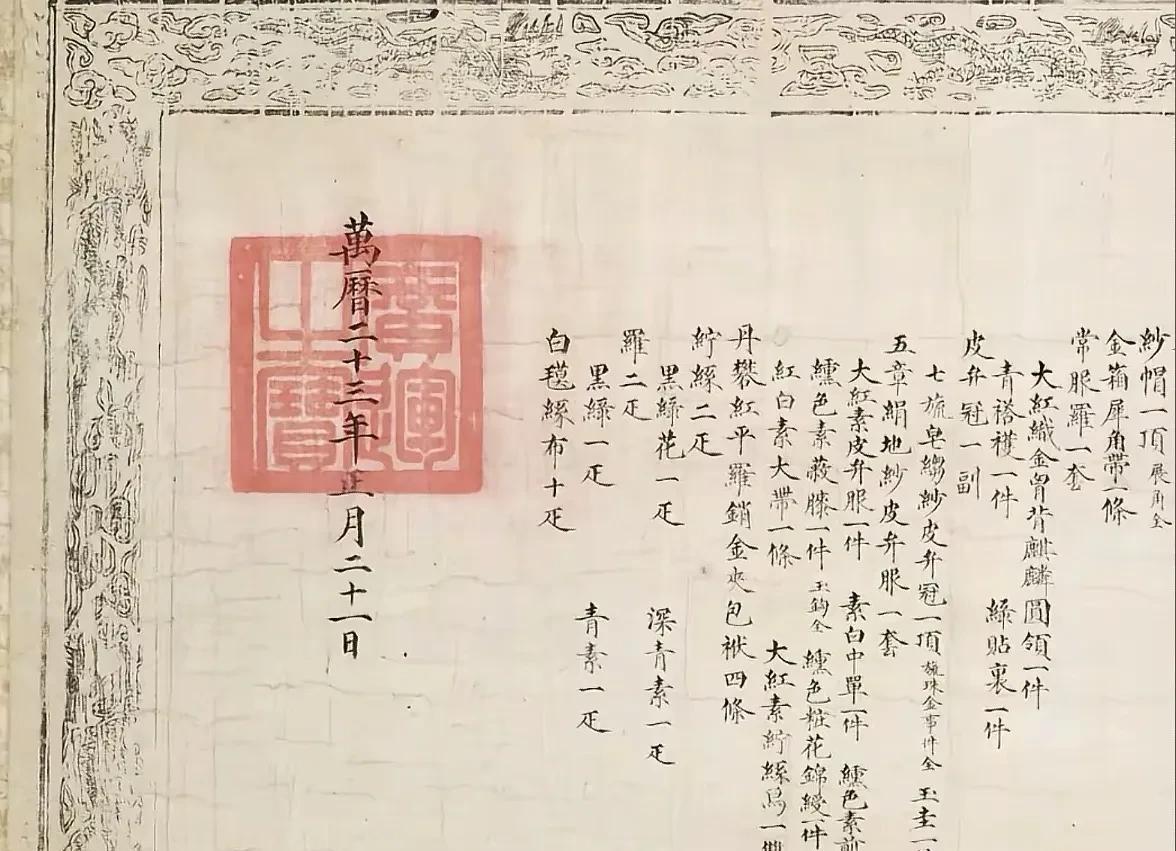 紗帽一頂展角全
金箱犀角帶一條
常服羅一套
大紅織金胷背麒麟圓領一件
青褡𧞤一件 綠貼裏一件
皮弁冠一副
七旒皂縐紗皮弁冠一頂旒珠金事件全 玉圭一
五章絹地紗皮弁服一套
大紅素皮弁服一件 素白中單一件 纁色素前
纁色素蔽膝一件玉鈎全 纁色粧花錦綬一件
紅白素大帶一條 大紅素紵絲舄一雙
丹礬紅平羅銷金夾包袱四條
紵絲二疋
黑綠花一疋 深青素一疋
羅二疋
黑綠一疋 青素一疋
白氁絲布十疋
萬曆二十三年正月二十一日
廣運之寶